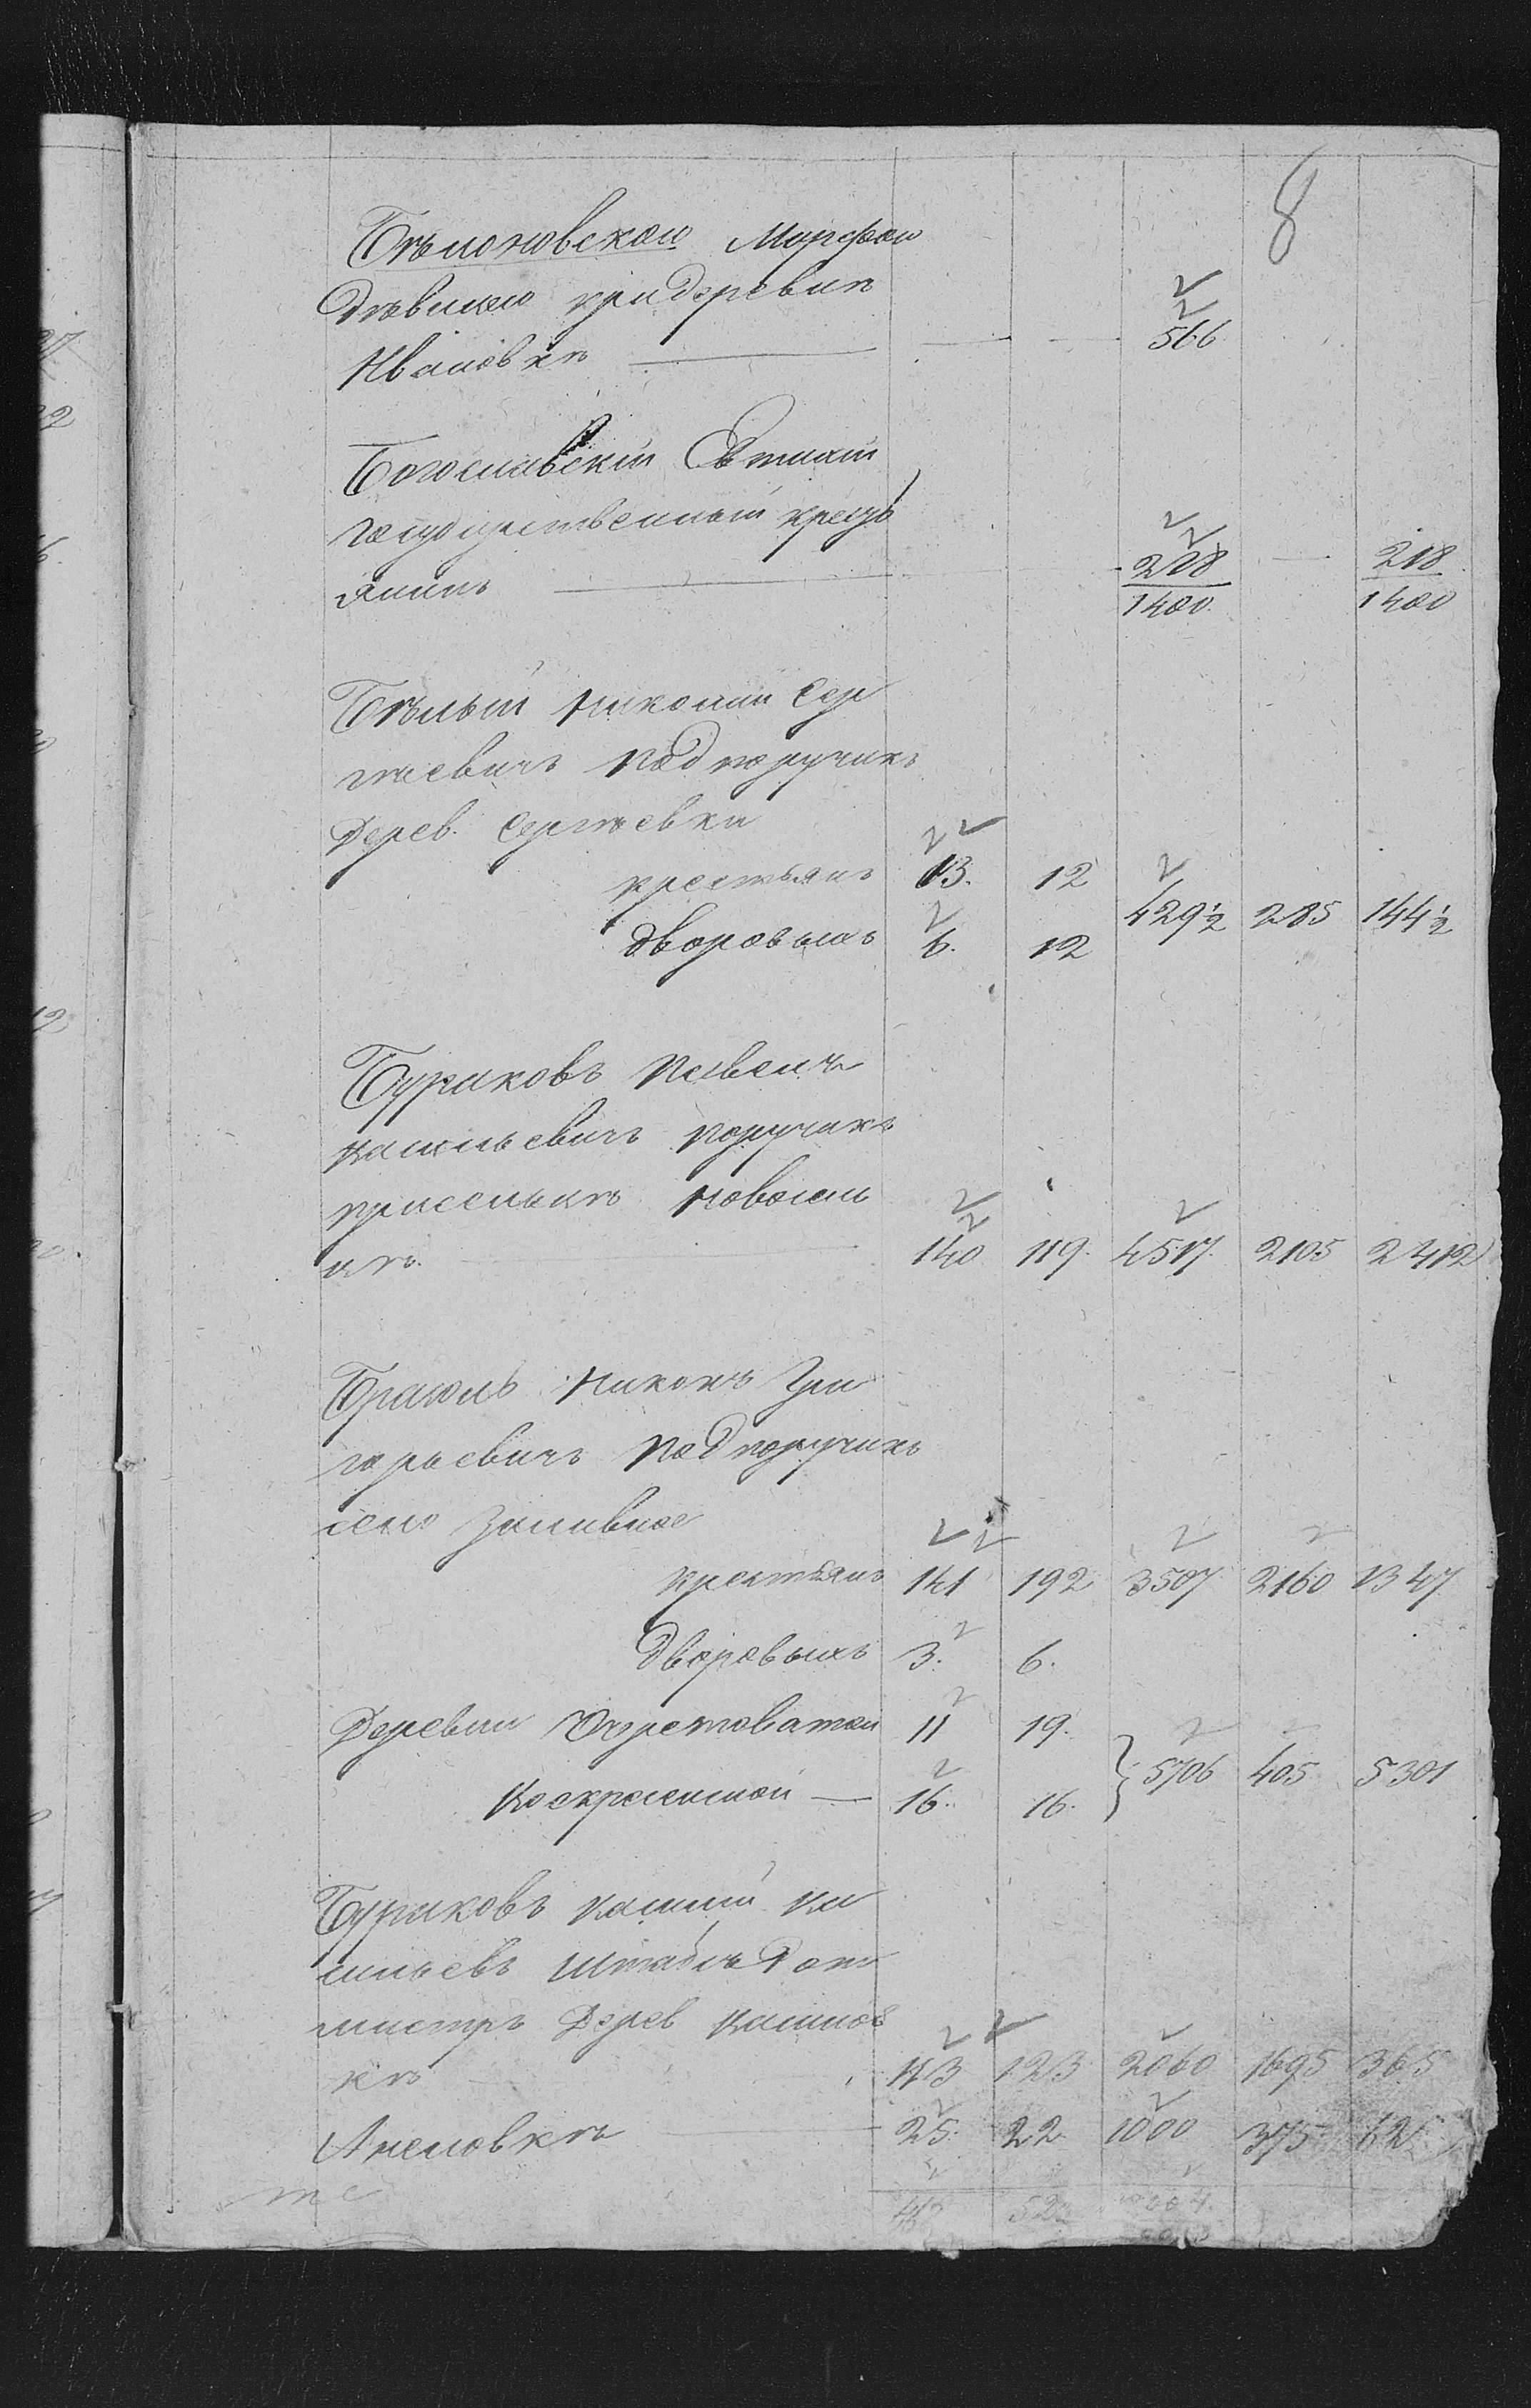 8
Бѣлоновскою Марѳою
Дѣвицею при деревнѣ
Ивановкѣ — 566
Богославскій Евтихій
государственный кресть
янинъ — 218/1400 — 218/1400
Бѣлый Николай Сер
гѣевичъ Подпоручикъ
Дерев. Сергѣевки
крестьянъ 13. 12
429½ 285 144½
дворовыхъ 6. 12
Буриковъ Павелъ
Васильевичъ Поручикъ
присельцѣ Новосель
цѣ. 140 119. 4517. 2105 2412
Брагиль Никонъ Гри
горьевичъ Подпоручикъ
село Заливное
крестьянъ 141 192 3507 2160 1347
Дворовыхъ 3. 6.
Деревни Очеретоватой 11 19.
5706 405 5301
Воскресенной — 16. 16.
Буриковъ Василій Ва
сильевъ Штабсъ Рот
мистръ Дерев
кѣ 113 123 2060 1695 365
25. 22 1000 375 625